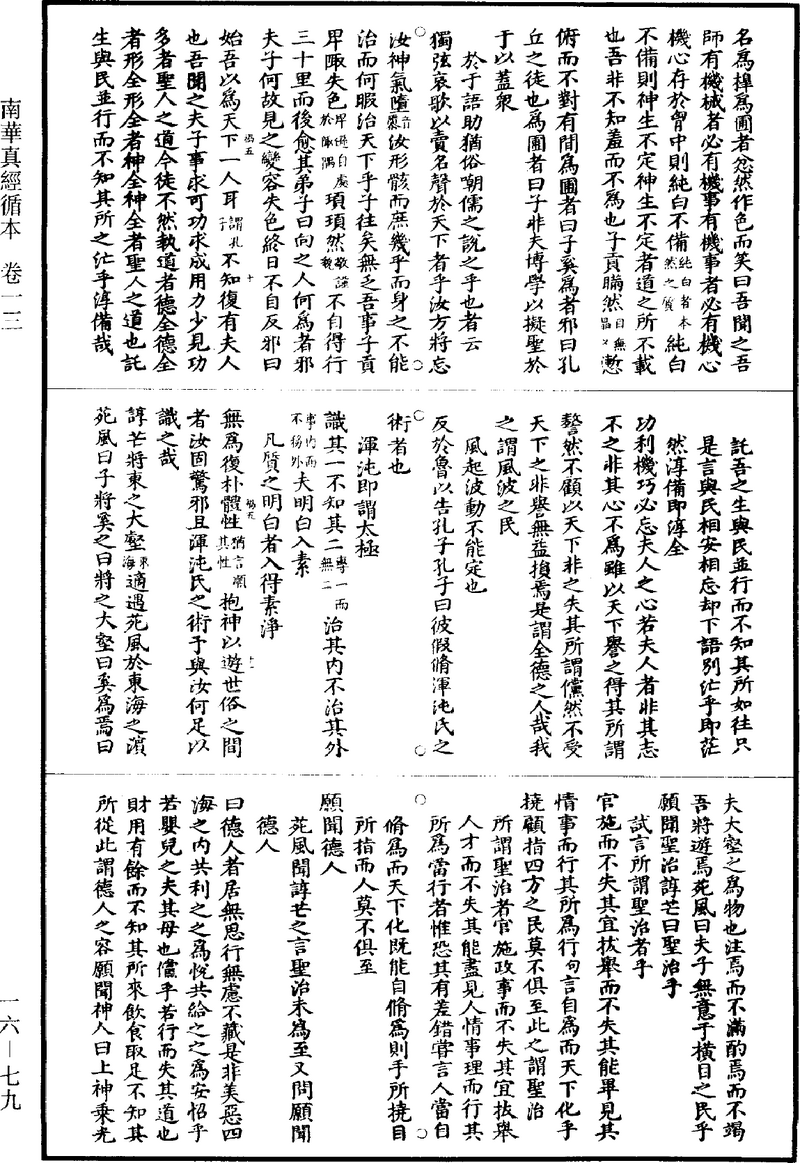 名爲槹爲圃者忿然作色而笑曰吾聞之吾
師有機械者必有機事有機事者必有機心
機心存於胷中則純白不備純白者本然之質純白
不備則神生不定神生不定者道之所不載
也吾非不知羞而不爲也子貢瞞然目無晶义慙
俯而不對有間爲圃者曰子奚爲者邪曰孔
丘之徒也爲圃者曰子非夫博學以擬聖於
于以蓋衆
於于語助猶俗嘲儒之說之乎也者云
獨弦哀歌以賣名聲於天下者乎汝方將忘
汝神氣墮音隳汝形骸而庶幾乎而身之不能
治而何暇治天下乎子往矣無乏吾事子貢
卑陬失色卑遜自處於陬隅頊頊然敬謹貌不自得行
三十里而後愈其弟子曰向之人何爲者邪
夫子何故見之變容失色終日不自反邪曰
始吾以爲天下一人耳謂孔子不知復有夫人
也吾聞之夫子事求可功求成用力少見功
多者聖人之道今徒不然執道者德全德全
者形全形全者神全神全者聖人之道也託
生與民並行而不知其所之汒乎淳備哉
託吾之生與民並行而不知其所如往只
是言與民相安相忘却下語別汒乎即茫
然淳備即淳全
功利機巧必忘夫人之心若夫人者非其志
不之非其心不爲雖以天下譽之得其所謂
謷然不顧以天下非之失其所謂儻然不受
天下之非譽無益損焉是謂全德之人哉我
之謂風波之民
風起波動不能定也
反於魯以告孔子孔子曰彼假脩渾沌氏之
術者也
渾沌即謂太極
識其一不知其二專一而無二治其內不治其外
事內而不務外夫明白入素
凡質之明白者入得素淨
無爲復朴體性猶言順其性抱神以遊世俗之間
者汝固驚邪且渾沌氏之術予與汝何足以
識之哉
諄芒將東之大壑東海適遇苑風於東海之濵
苑風曰子將奚之曰將之大壑曰奚爲焉曰
夫大壑之爲物也注焉而不滿酌焉而不竭
吾將遊焉苑風曰夫子無意于橫目之民乎
願聞聖治諄芒曰聖治乎
試言所謂聖治者乎
官施而不失其宜拔舉而不失其能畢見其
情事而行其所爲行句言自爲而天下化乎
撓顧指四方之民莫不俱至此之謂聖治
所謂聖治者官施政事而不失其宜拔舉
人才而不失其能盡見人情事理而行其
所爲當行者惟恐其有差錯嘗言人當自
脩爲而天下化既能自脩爲則手所撓目
所指而人莫不俱至
願聞德人
苑風聞諄芒之言聖治未爲至又問願聞
德人
曰德人者居無思行無慮不藏是非美惡四
海之內共利之之爲悅共給之之爲安怊乎
若嬰兒之失其母也儻乎若行而失其道也
財用有餘而不知其所來飲食取足不知其
所從此謂德人之容願聞神人曰上神乘光
南華真經循本 卷一三
一六—七九